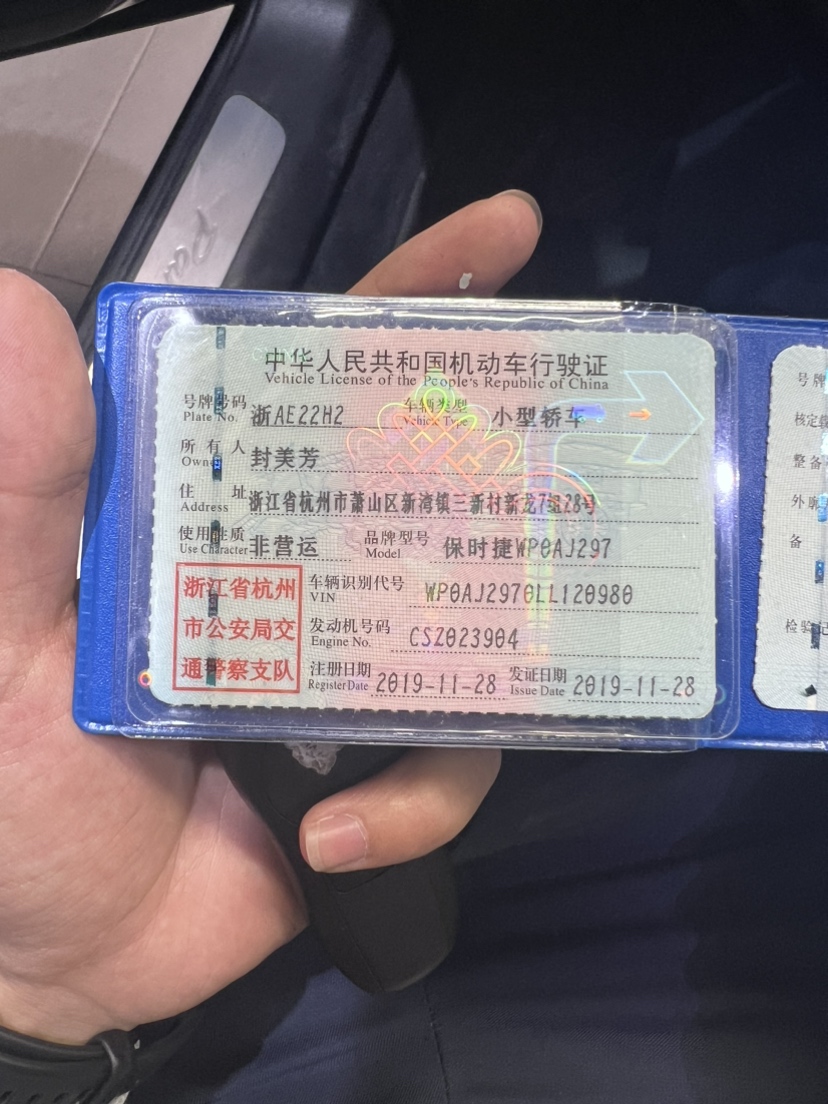 中华人民共和国机动车行驶证
Vehicle License of the People's Republic of China
号牌号码 浙AE22H2 车辆类型 小型轿车
Plate No. Vehicle Type
所有人 封美芳
Owner
住址 浙江省杭州市萧山区新湾镇三新村新龙7组28号
Address
使用性质 非营运 品牌型号 保时捷WP0AJ297
Use Character Model
浙江省杭州
市公安局交
通警察支队
车辆识别代号 WP0AJ2970LL120980
VIN
发动机号码 CSZ023904
Engine No.
注册日期 2019-11-28 发证日期 2019-11-28
Register Date Issue Date
号牌
核定
整备
外
备
检验记